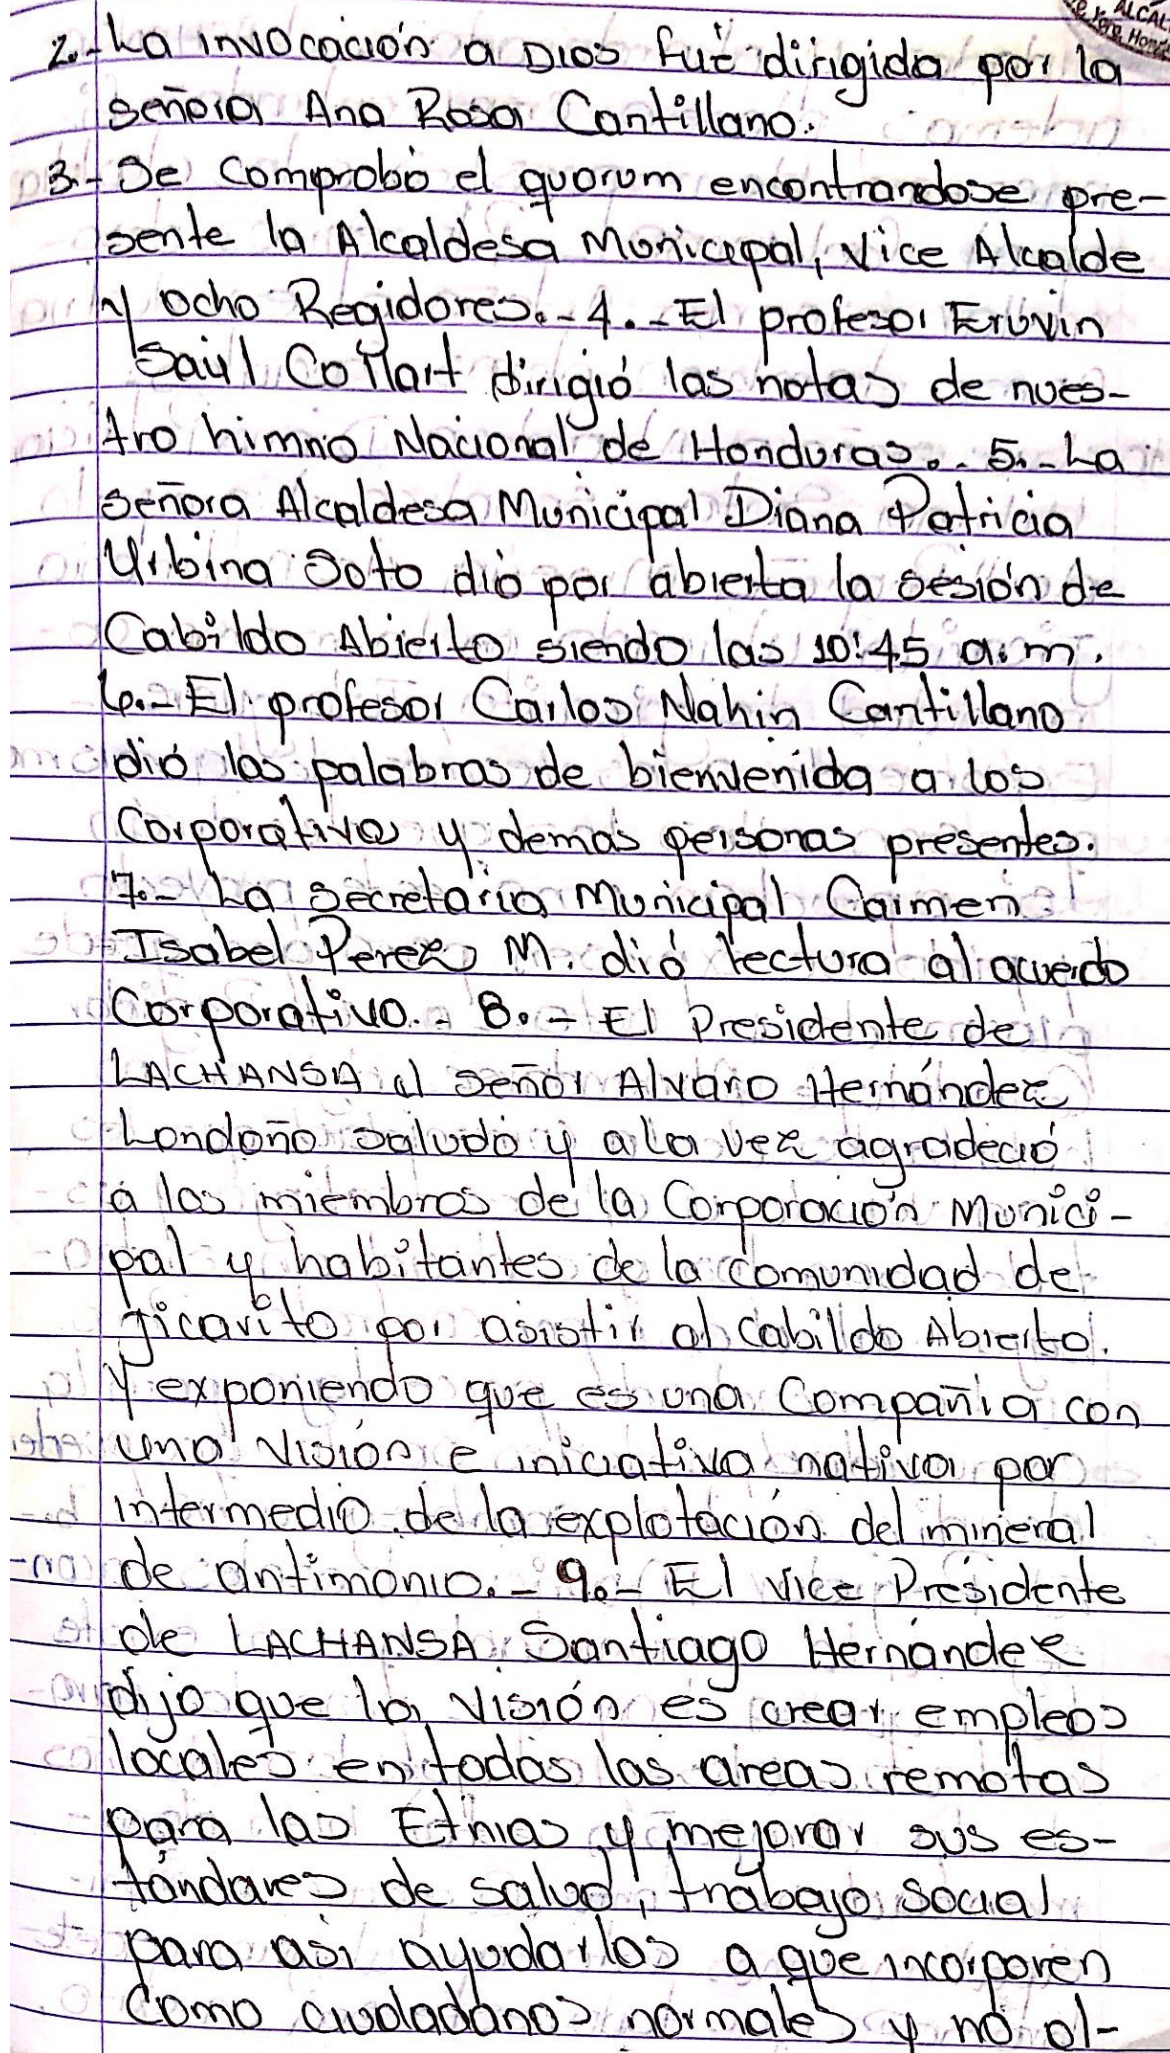 ALCAL
Yoro, Hond
2.- La invocación a Dios fué dirigida por la
señora Ana Rosa Cantillano.
3.- Se Comprobó el quorum encontrandose pre-
sente la Alcaldesa Municipal, Vice Alcalde
y ocho Regidores.- 4.- El profesor Eruvin
Saúl Collart dirigió las notas de nues-
tro himno Nacional de Honduras.- 5.- La
señora Alcaldesa Municipal Diana Patricia
Urbina Soto dio por abierta la sesión de
Cabildo Abierto siendo las 10:45 a.m.
6.- El profesor Carlos Nahin Cantillano
dió las palabras de bienvenida a los
Corporativos y demás personas presentes.
7.- La Secretaria Municipal Carmen
Isabel Perez M. dió lectura al acuerdo
Corporativo.- 8.- El Presidente de
LACHANSA el Señor Alvaro Hernández
Londoño saludó y a la vez agradeció
a los miembros de la Corporación Munici-
pal y habitantes de la comunidad de
jicarito por asistir al cabildo Abierto.
Y exponiendo que es una Compañia con
una Visión e iniciativa nativa por
intermedio de la explotación del mineral
de antimonio.- 9.- El Vice Presidente
de LACHANSA Santiago Hernández
dijo que la visión es crear empleos
locales en todas las areas remotas
para las Etnias y mejorar sus es-
tándares de salud, trabajo social
para asi ayudarlos a que incorporen
como ciudadanos normales y no al-